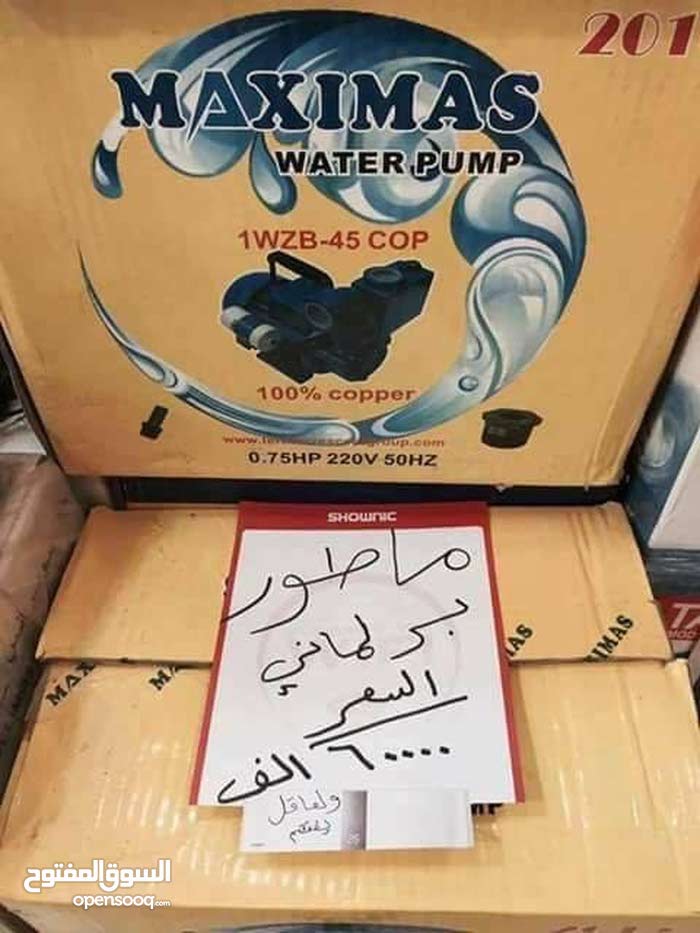 201
MAXIMAS
WATER PUMP
1WZB-45 COP
100% copper
0.75HP 220V 50HZ
SHOWNIC
ماطور
برلماني
السعر
٦٠٠٠٠ الف
والعاقل
يفتهم
MAX
MA
MAS
IMAS
PUMP
السوق المفتوح
opensooq.com